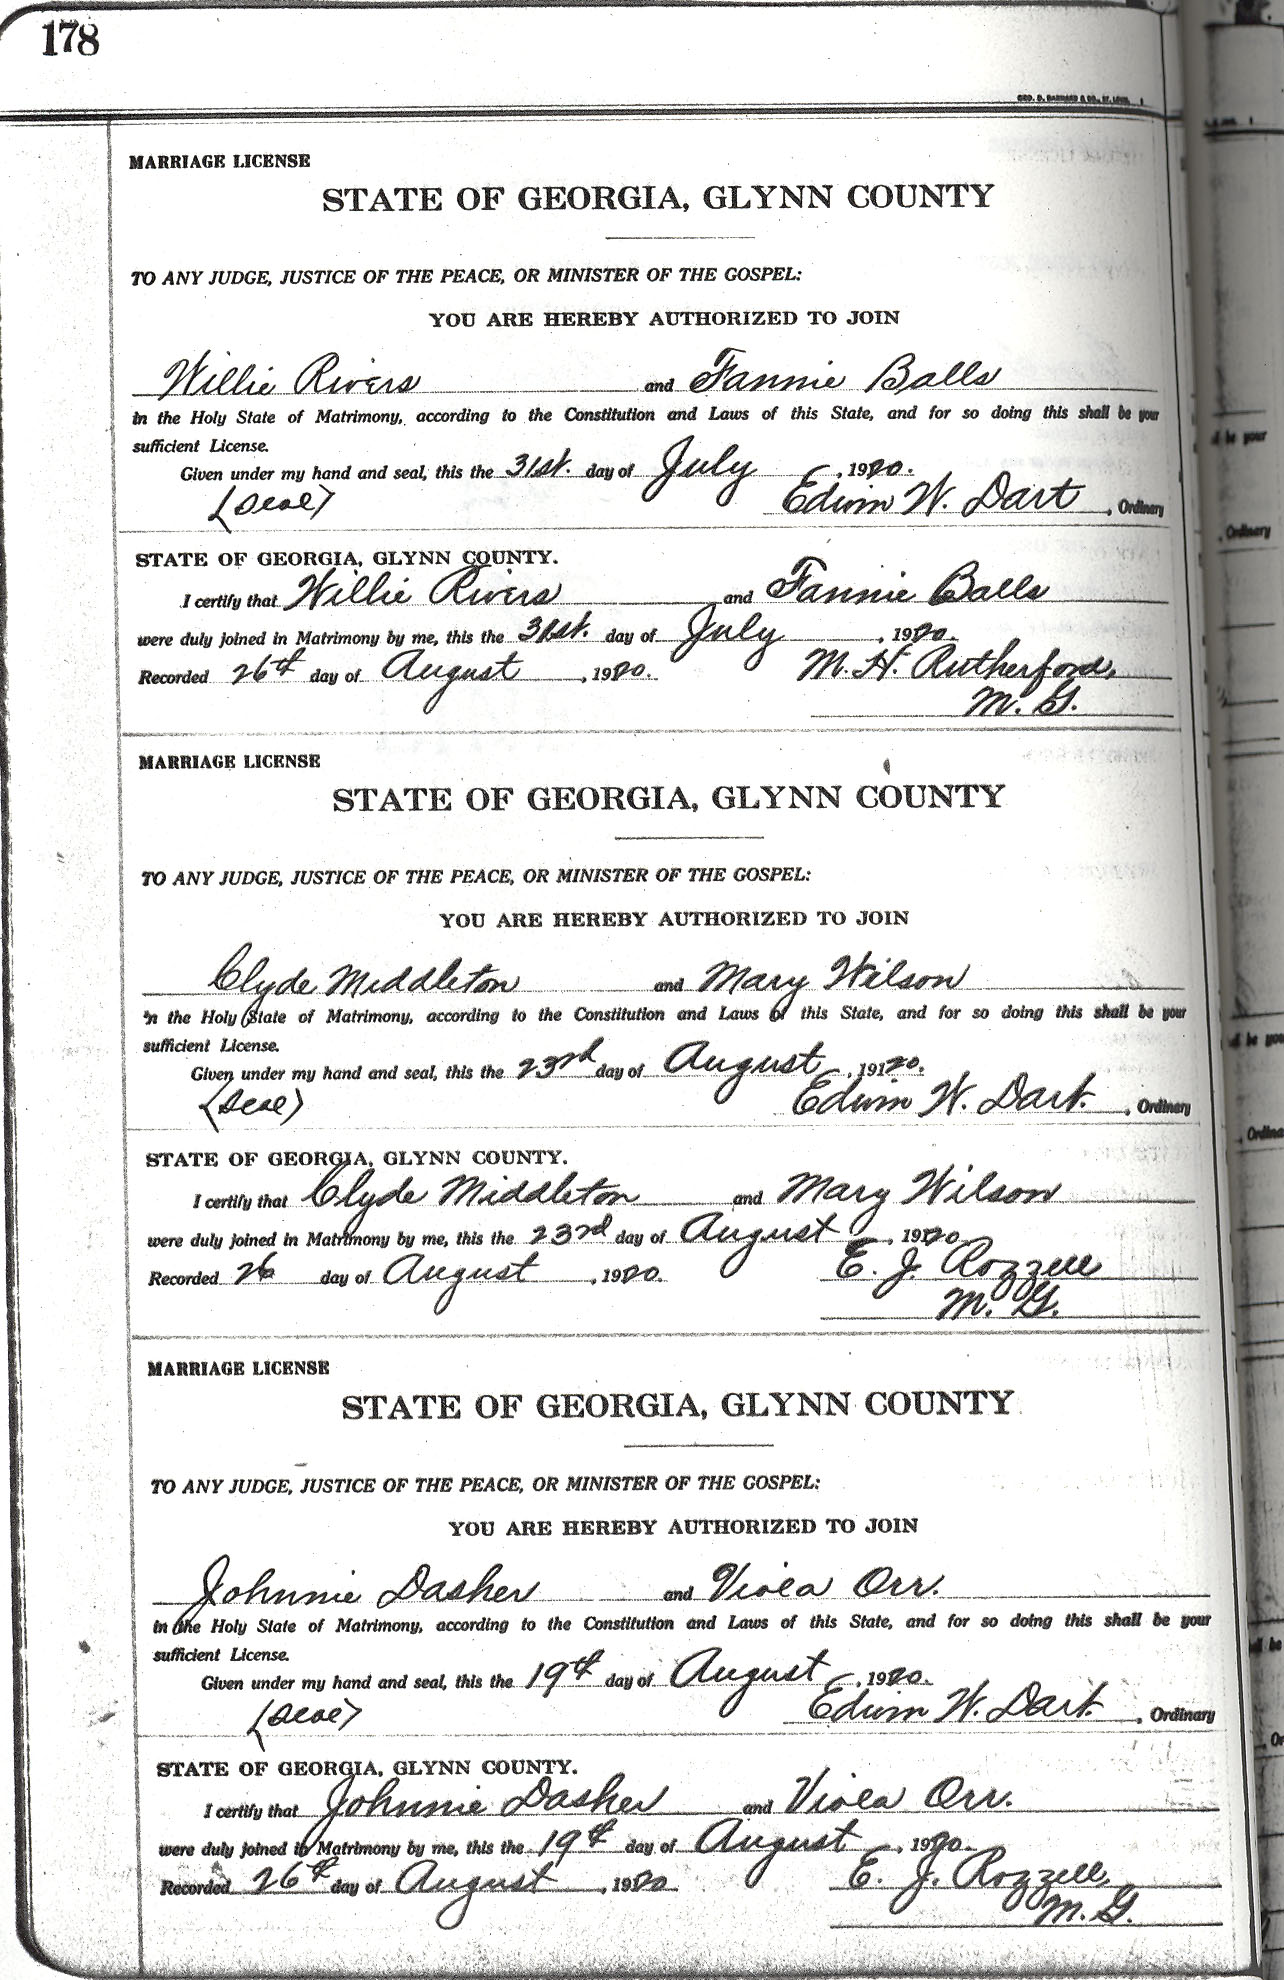 178
GEO. D. BARNARD & CO., ST. LOUIS
MARRIAGE LICENSE
STATE OF GEORGIA, GLYNN COUNTY
TO ANY JUDGE, JUSTICE OF THE PEACE, OR MINISTER OF THE GOSPEL:
YOU ARE HEREBY AUTHORIZED TO JOIN
Willie Rivers and Fannie Balls
in the Holy State of Matrimony, according to the Constitution and Laws of this State, and for so doing this shall be your
sufficient License.
Given under my hand and seal, this the 31st. day of July, 1920.
(Seal) Edwin W. Dart, Ordinary
STATE OF GEORGIA, GLYNN COUNTY.
I certify that Willie Rivers and Fannie Balls
were duly joined in Matrimony by me, this the 31st. day of July, 1920.
Recorded 26th day of August, 1920. M. H. Rutherford,
M. G.
MARRIAGE LICENSE
STATE OF GEORGIA, GLYNN COUNTY
TO ANY JUDGE, JUSTICE OF THE PEACE, OR MINISTER OF THE GOSPEL:
YOU ARE HEREBY AUTHORIZED TO JOIN
Clyde Middleton and Mary Wilson
in the Holy State of Matrimony, according to the Constitution and Laws of this State, and for so doing this shall be your
sufficient License.
Given under my hand and seal, this the 23rd day of August, 1920.
(Seal) Edwin W. Dart. , Ordinary
STATE OF GEORGIA, GLYNN COUNTY.
I certify that Clyde Middleton and Mary Wilson
were duly joined in Matrimony by me, this the 23rd day of August, 1920.
Recorded 26 day of August, 1920. E. J. Rozzell
M. G.
MARRIAGE LICENSE
STATE OF GEORGIA, GLYNN COUNTY
TO ANY JUDGE, JUSTICE OF THE PEACE, OR MINISTER OF THE GOSPEL:
YOU ARE HEREBY AUTHORIZED TO JOIN
Johnnie Dasher and Viola Orr.
in the Holy State of Matrimony, according to the Constitution and Laws of this State, and for so doing this shall be your
sufficient License.
Given under my hand and seal, this the 19th day of August, 1920.
(Seal) Edwin W. Dart. , Ordinary
STATE OF GEORGIA, GLYNN COUNTY.
I certify that Johnnie Dasher and Viola Orr.
were duly joined in Matrimony by me, this the 19th day of August, 1920.
Recorded 26th day of August, 1920 E. J. Rozzell,
M. G.